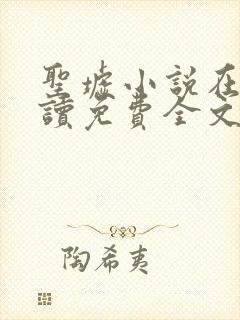 聖墟小説在
讀免費全文
陶希夷